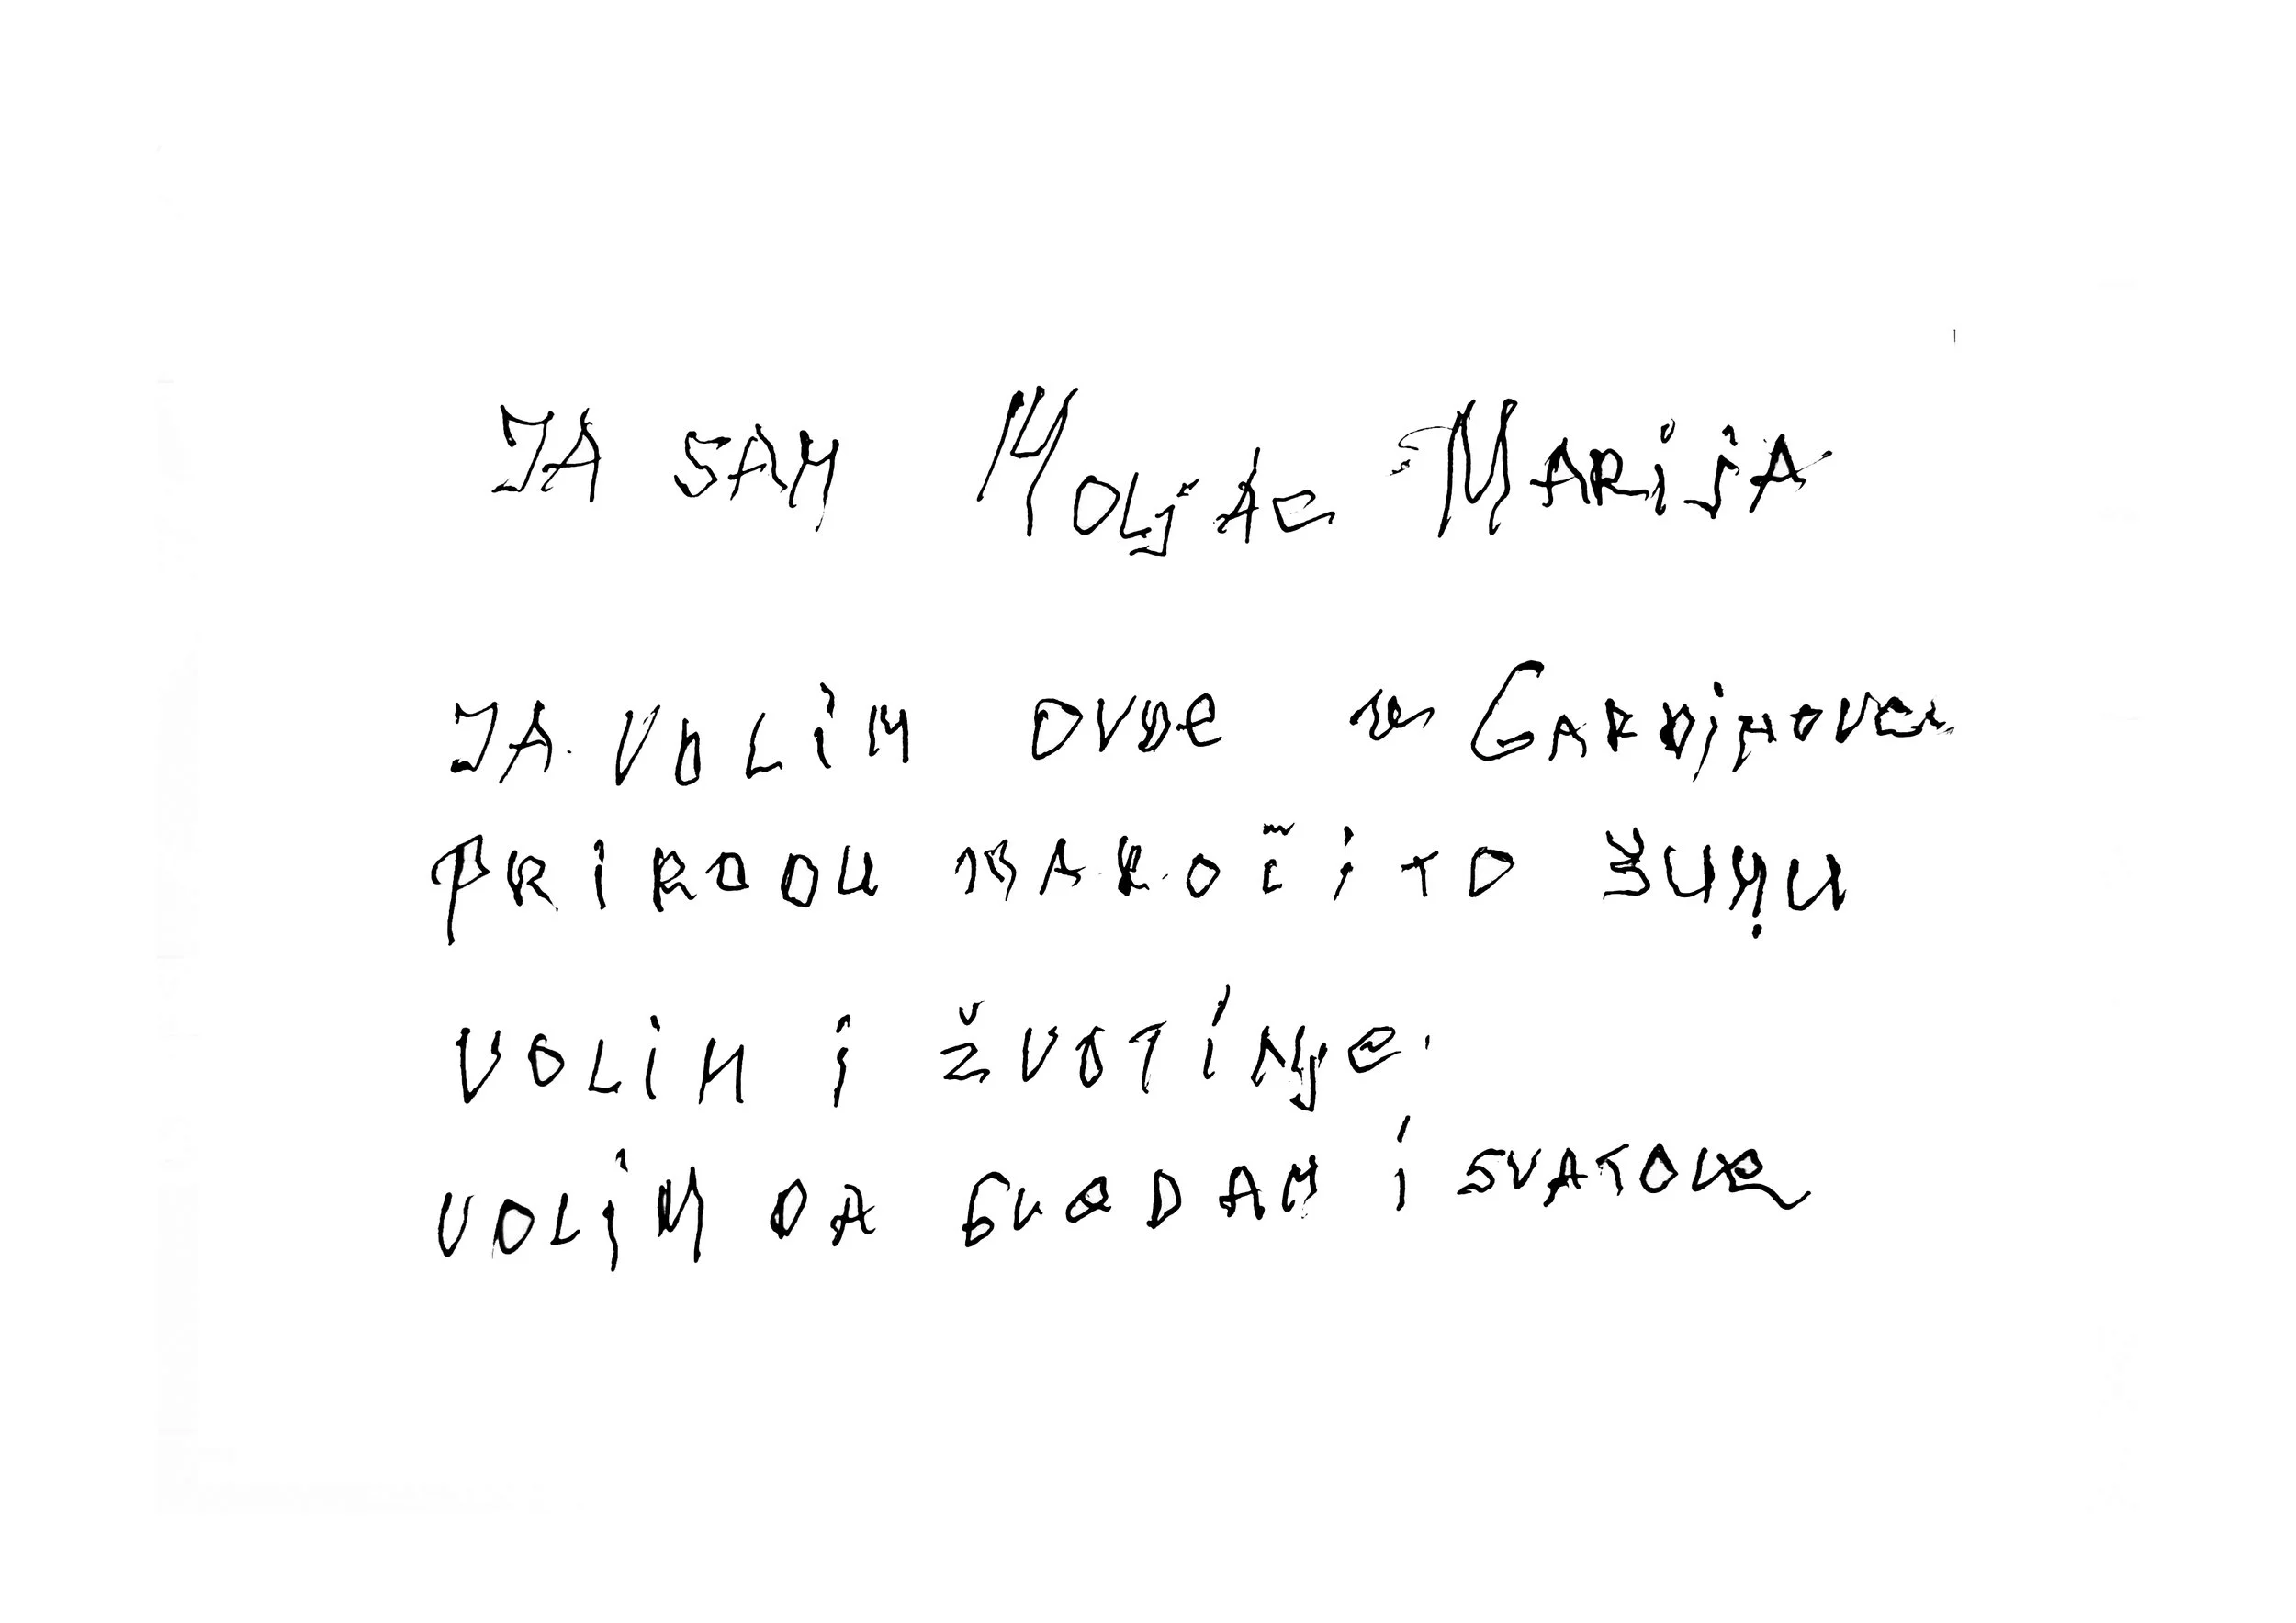 JA SAM MOLJAC MARIJA
JA VOLIM OVDE U GARDINOVCU
PRIRODU NAROČITO ŠUMU
VOLIM I ŽVOTINJE.
VOLIM DA GLEDAM I SVATOVE